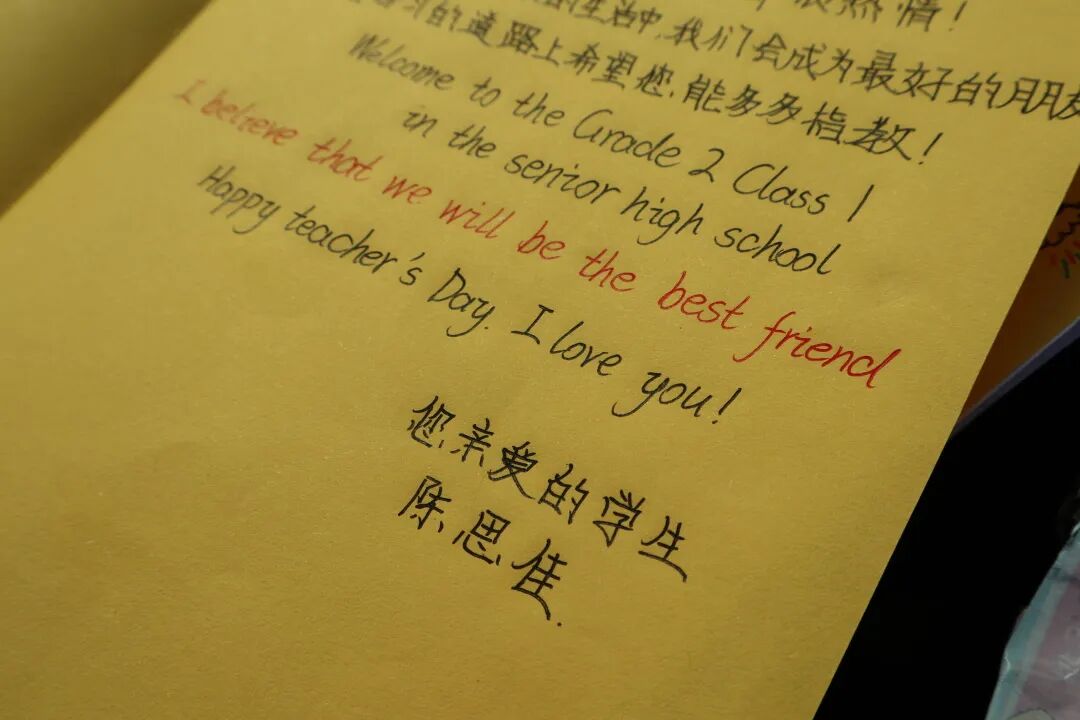 热情！
的生活中，我们会成为最好的朋友
习的道路上希望您，能多多指教！
Welcome to the Grade 2 Class 1
in the senior high school
I believe that we will be the best friend
Happy teacher's Day. I love you!
您亲爱的学生
陈思佳.